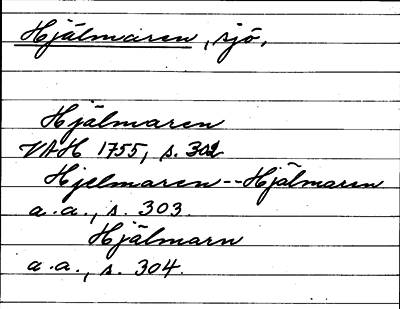 Hjälmaren, sjö,
Hjälmaren
VAH 1755, s. 302
Hjelmaren--Hjälmaren
a.a., s. 303.
Hjälmarn
a.a., s. 304.